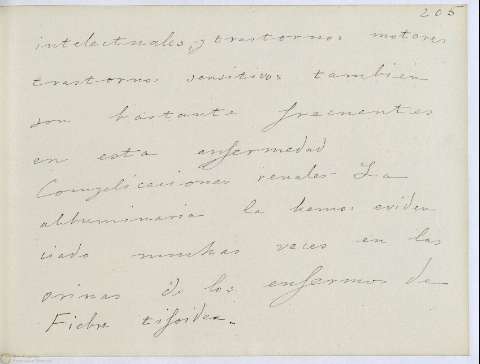 205
intelectuales, y trastornos motores
trastornos sensitivos también
son bastante frecuentes
en esta enfermedad
Complicaciones renales La
albuminaria la hemos eviden
ciado muchas veces en las
orinas de los enfermos de
Fiebre tifoidea.